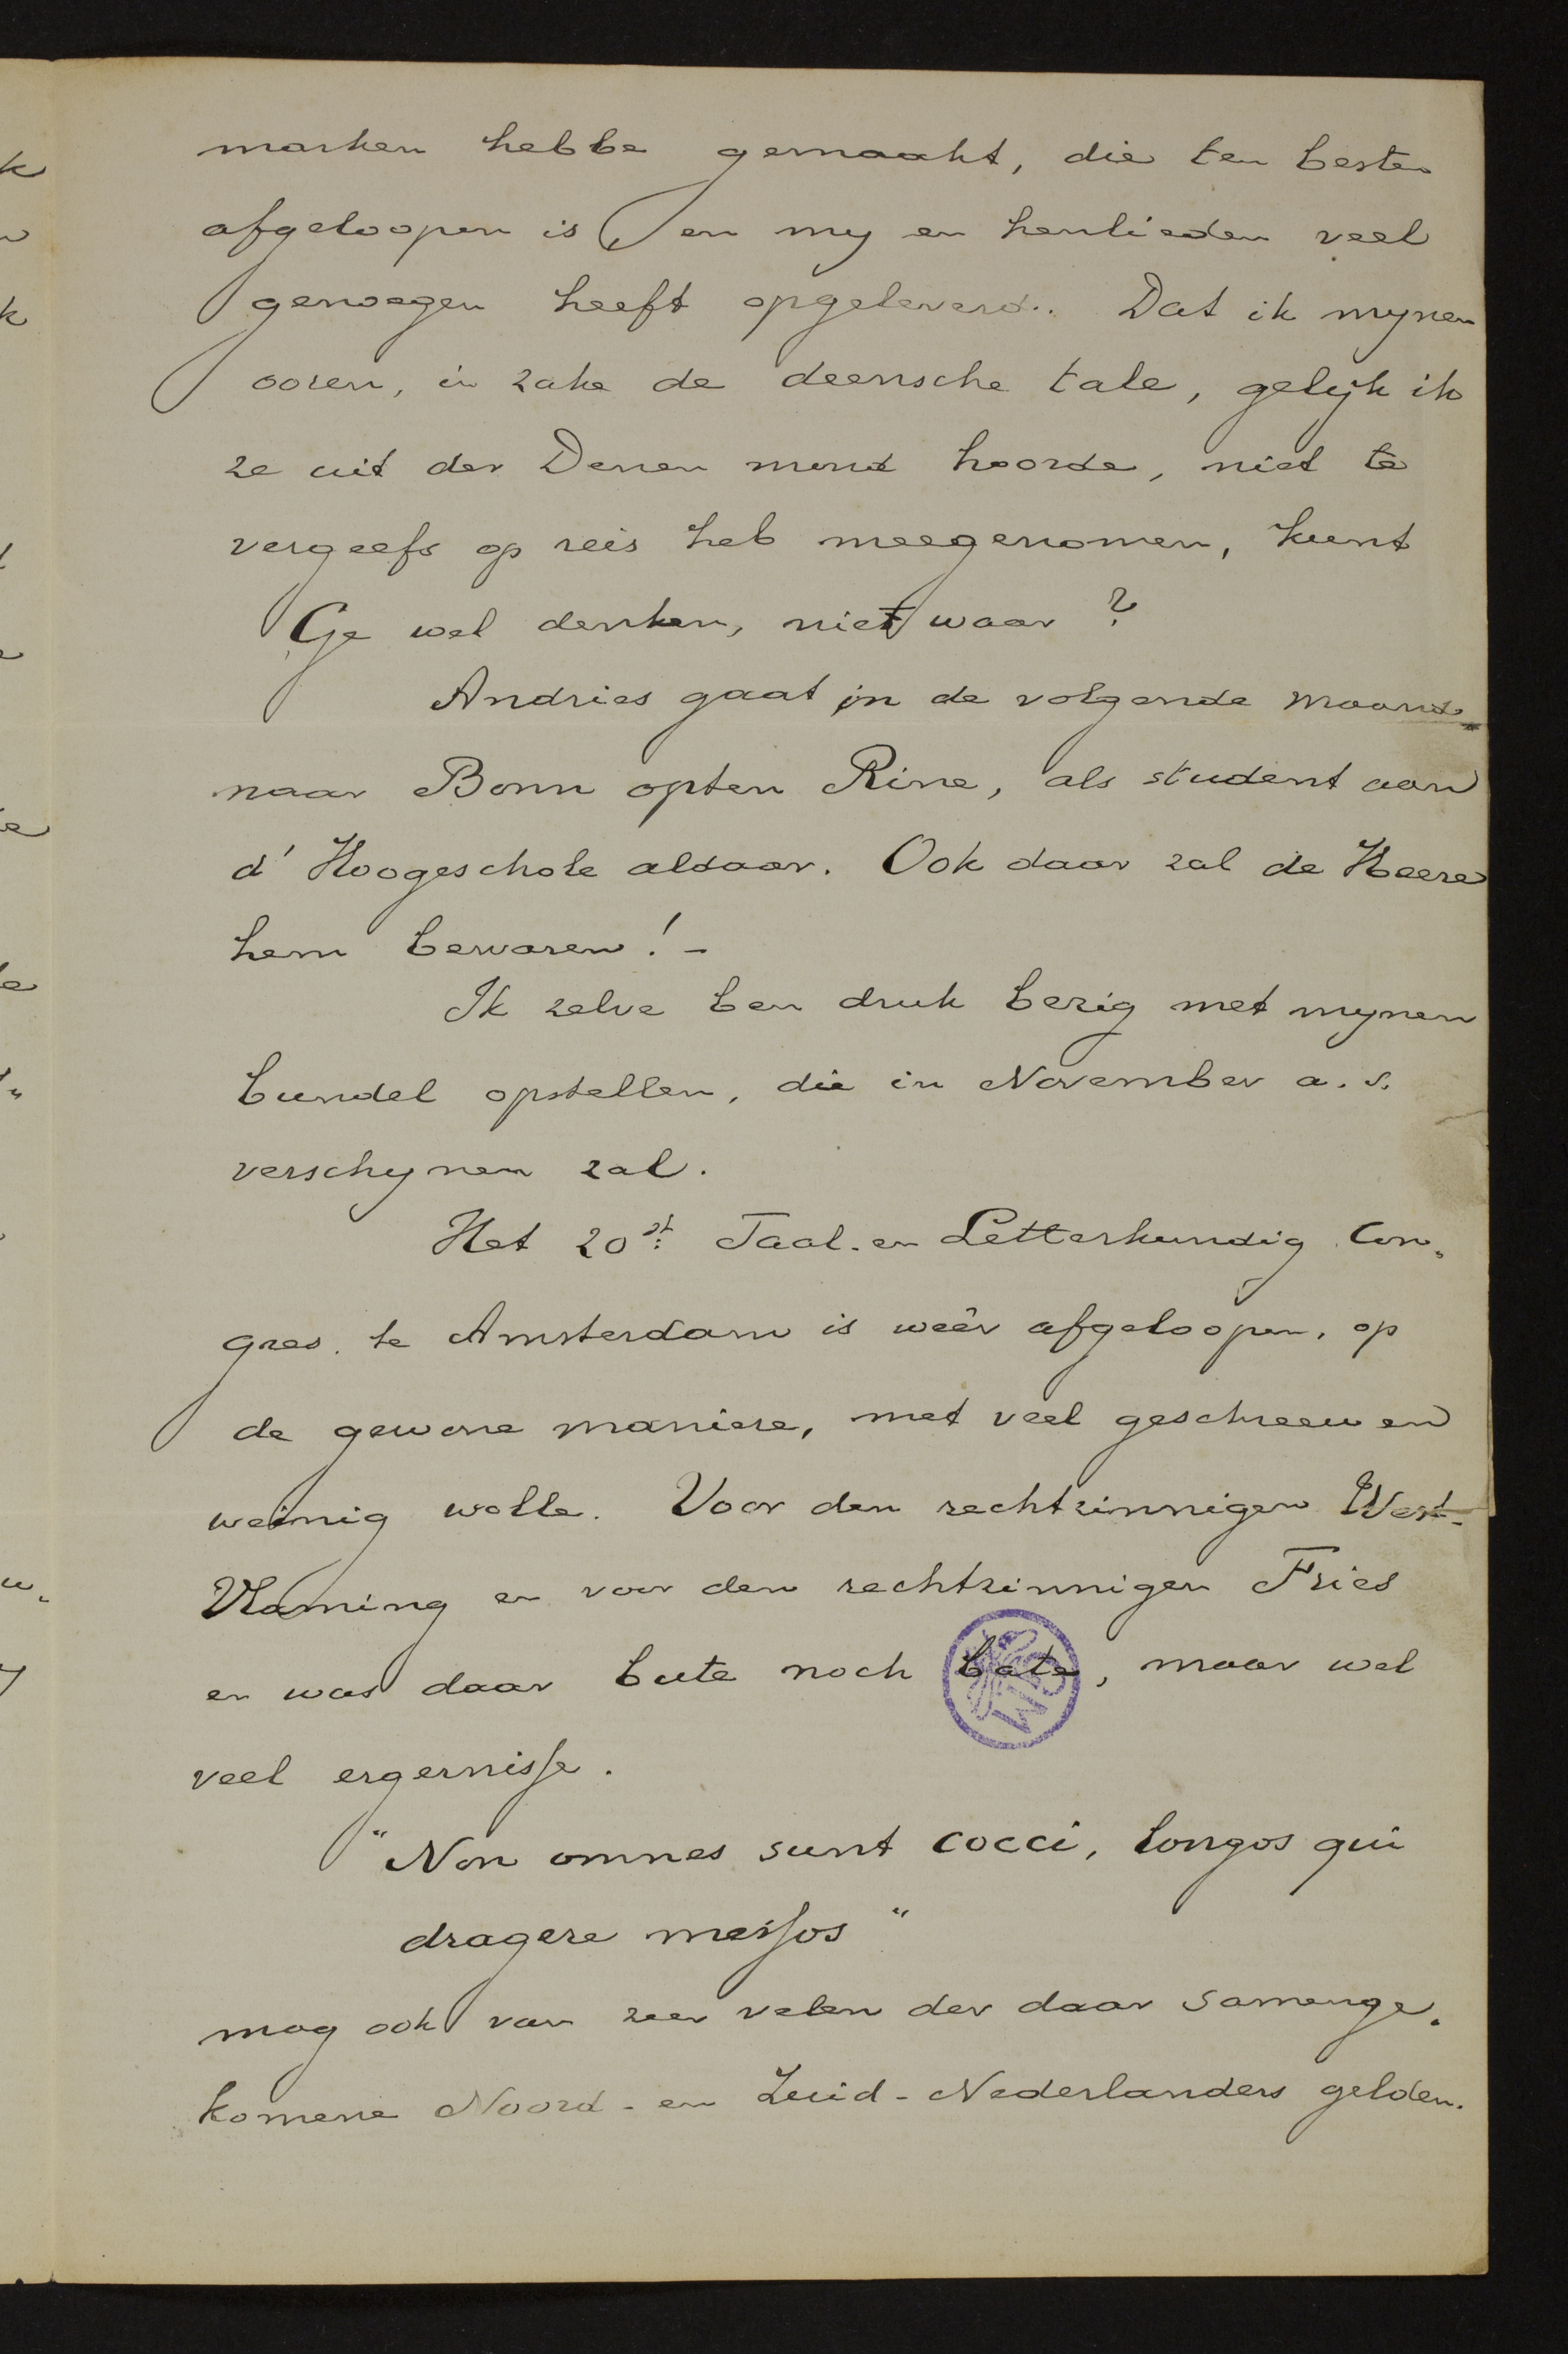 marken hebbe gemaakt, die ten besten
afgeloopen is en my en henlieden veel
genoegen heeft opgeleverd. Dat ik mynen
ooren, in zake de deensche tale, gelyk ik
ze uit der Denen mond hoorde, niet te
vergeefs op reis heb meegenomen, kunt
Ge wel denken, niet waar?
Andries gaat in de volgende maand
naar Bonn opten Rine, als student aan
d' Hoogeschole aldaar. Ook daar zal de Heere
hem bewaren! -
Ik zelve ben druk bezig met mynen
bundel opstellen, die in November a. s.
verschynen zal.
Het 20st: Taal- en Letterkundig Con„
gres te Amsterdam is weêr afgeloopen, op
de gewone maniere, met veel geschreeuw en
weinig wolle. Voor den rechtzinnigen West-
Vlaming en voor den rechtzinnigen Fries
en was daar bute noch bate, maar wel
veel ergernisse.
"Non omnes sunt cocci, longos qui
dragere messos"
mag ook van zeer velen der daar samenge„
komene Noord- en Zuid-Nederlanders gelden.